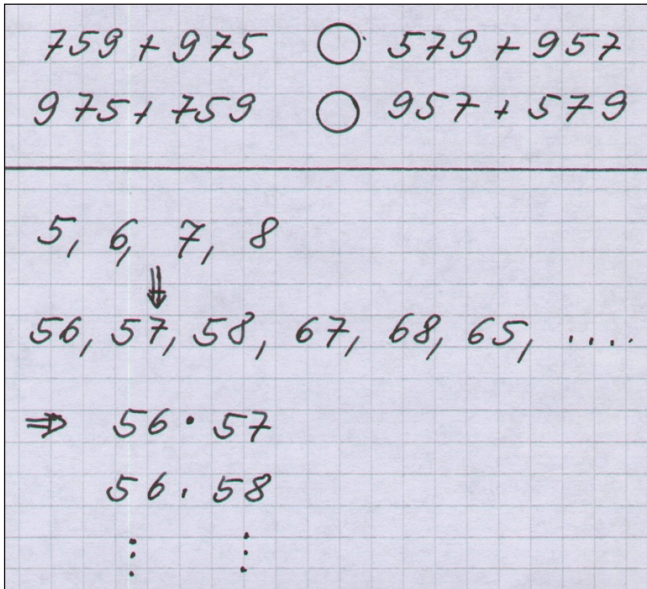 759 + 975 ◯ 579 + 957
975 + 759 ◯ 957 + 579
5, 6, 7, 8
⇓
56, 57, 58, 67, 68, 65, ....
⇒ 56 · 57
56 · 58
⋮ ⋮